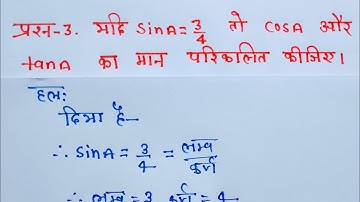 प्रश्न-3. यदि sinA = 3/4 तो cosA और
tanA का मान परिकलित कीजिए।
हल:
दिया है—
∴ sinA = 3/4 = लम्ब/कर्ण
∴ लम्ब = 3, कर्ण = 4